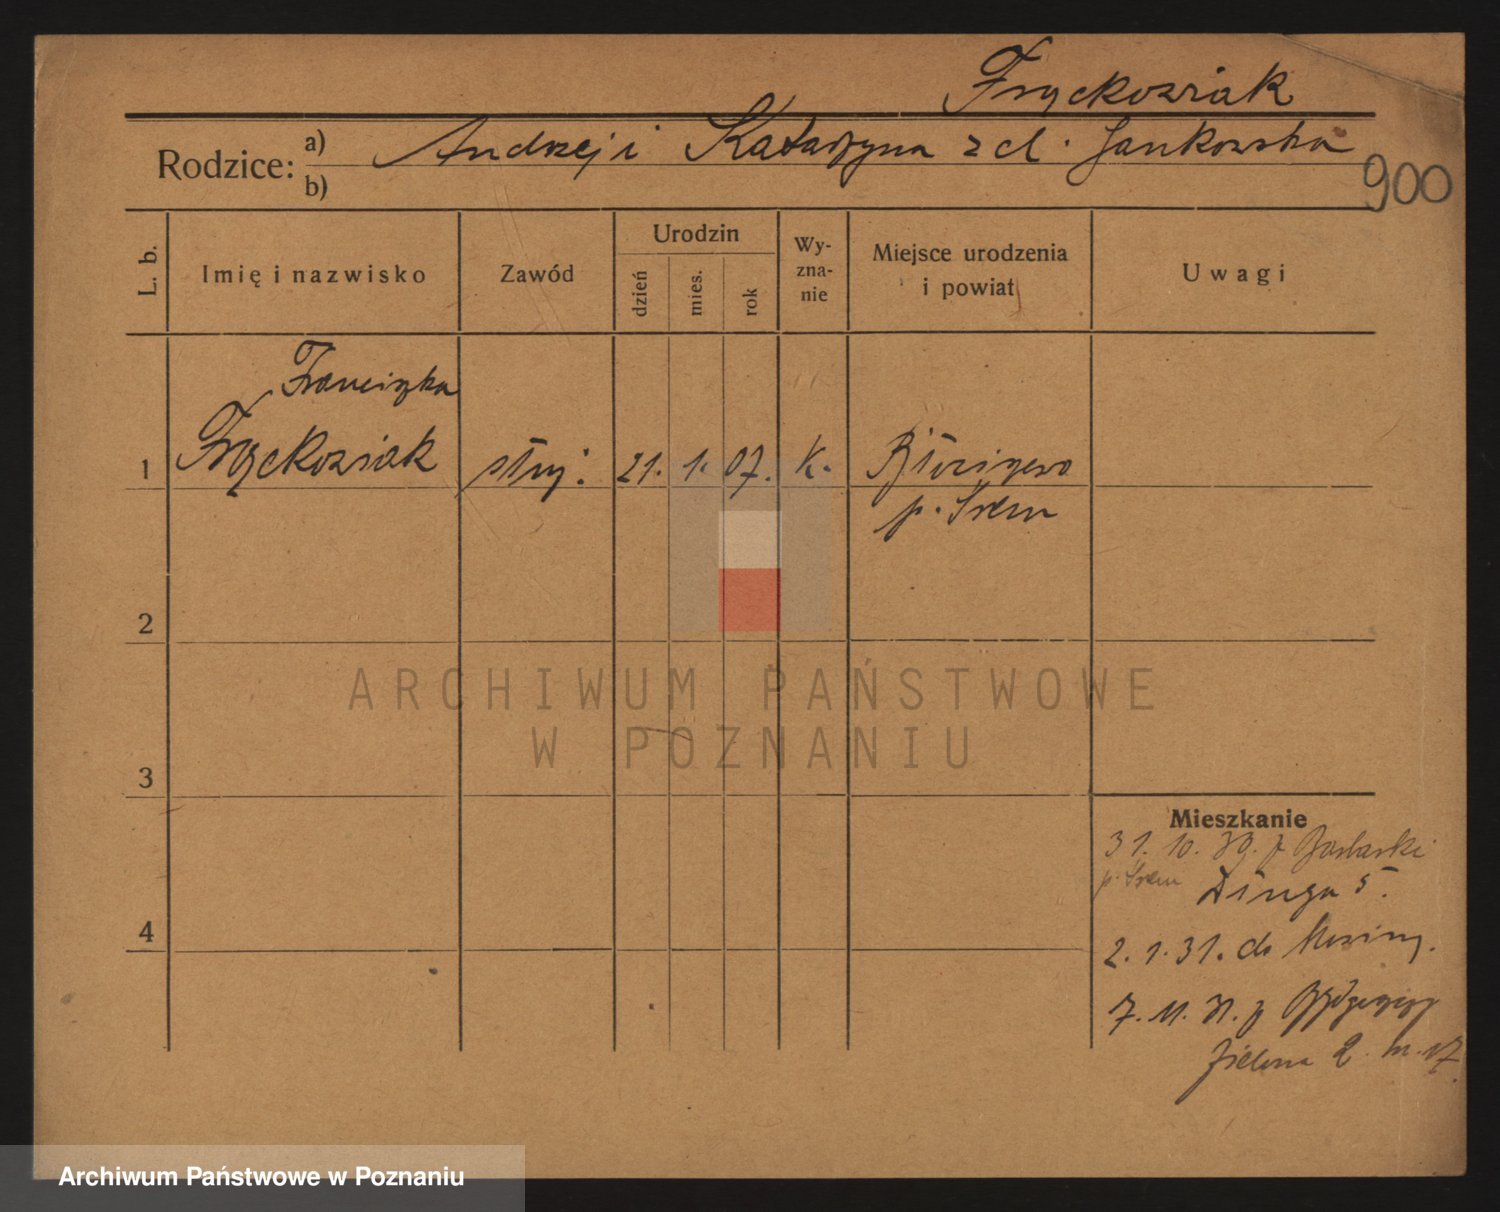 Frąckowiak
Rodzice: a) Andrzej i Katarzyna z d. Jankowska
b)
900
L. b.
Imię i nazwisko
Zawód
Urodzin
dzień
mies.
rok
Wy-
zna-
nie
Miejsce urodzenia
i powiat
Uwagi
Franciszka
1 Frąckowiak służ. 21. 1. 07. K.
p. Śrem
2
ARCHIWUM PAŃSTWOWE
W POZNANIU
3
Mieszkanie
31. 10. 30. z
p. Śrem Długa 5.
4
2. 1. 31. do
7. 11. 31. z
Zielona 2 m. 17.
Archiwum Państwowe w Poznaniu